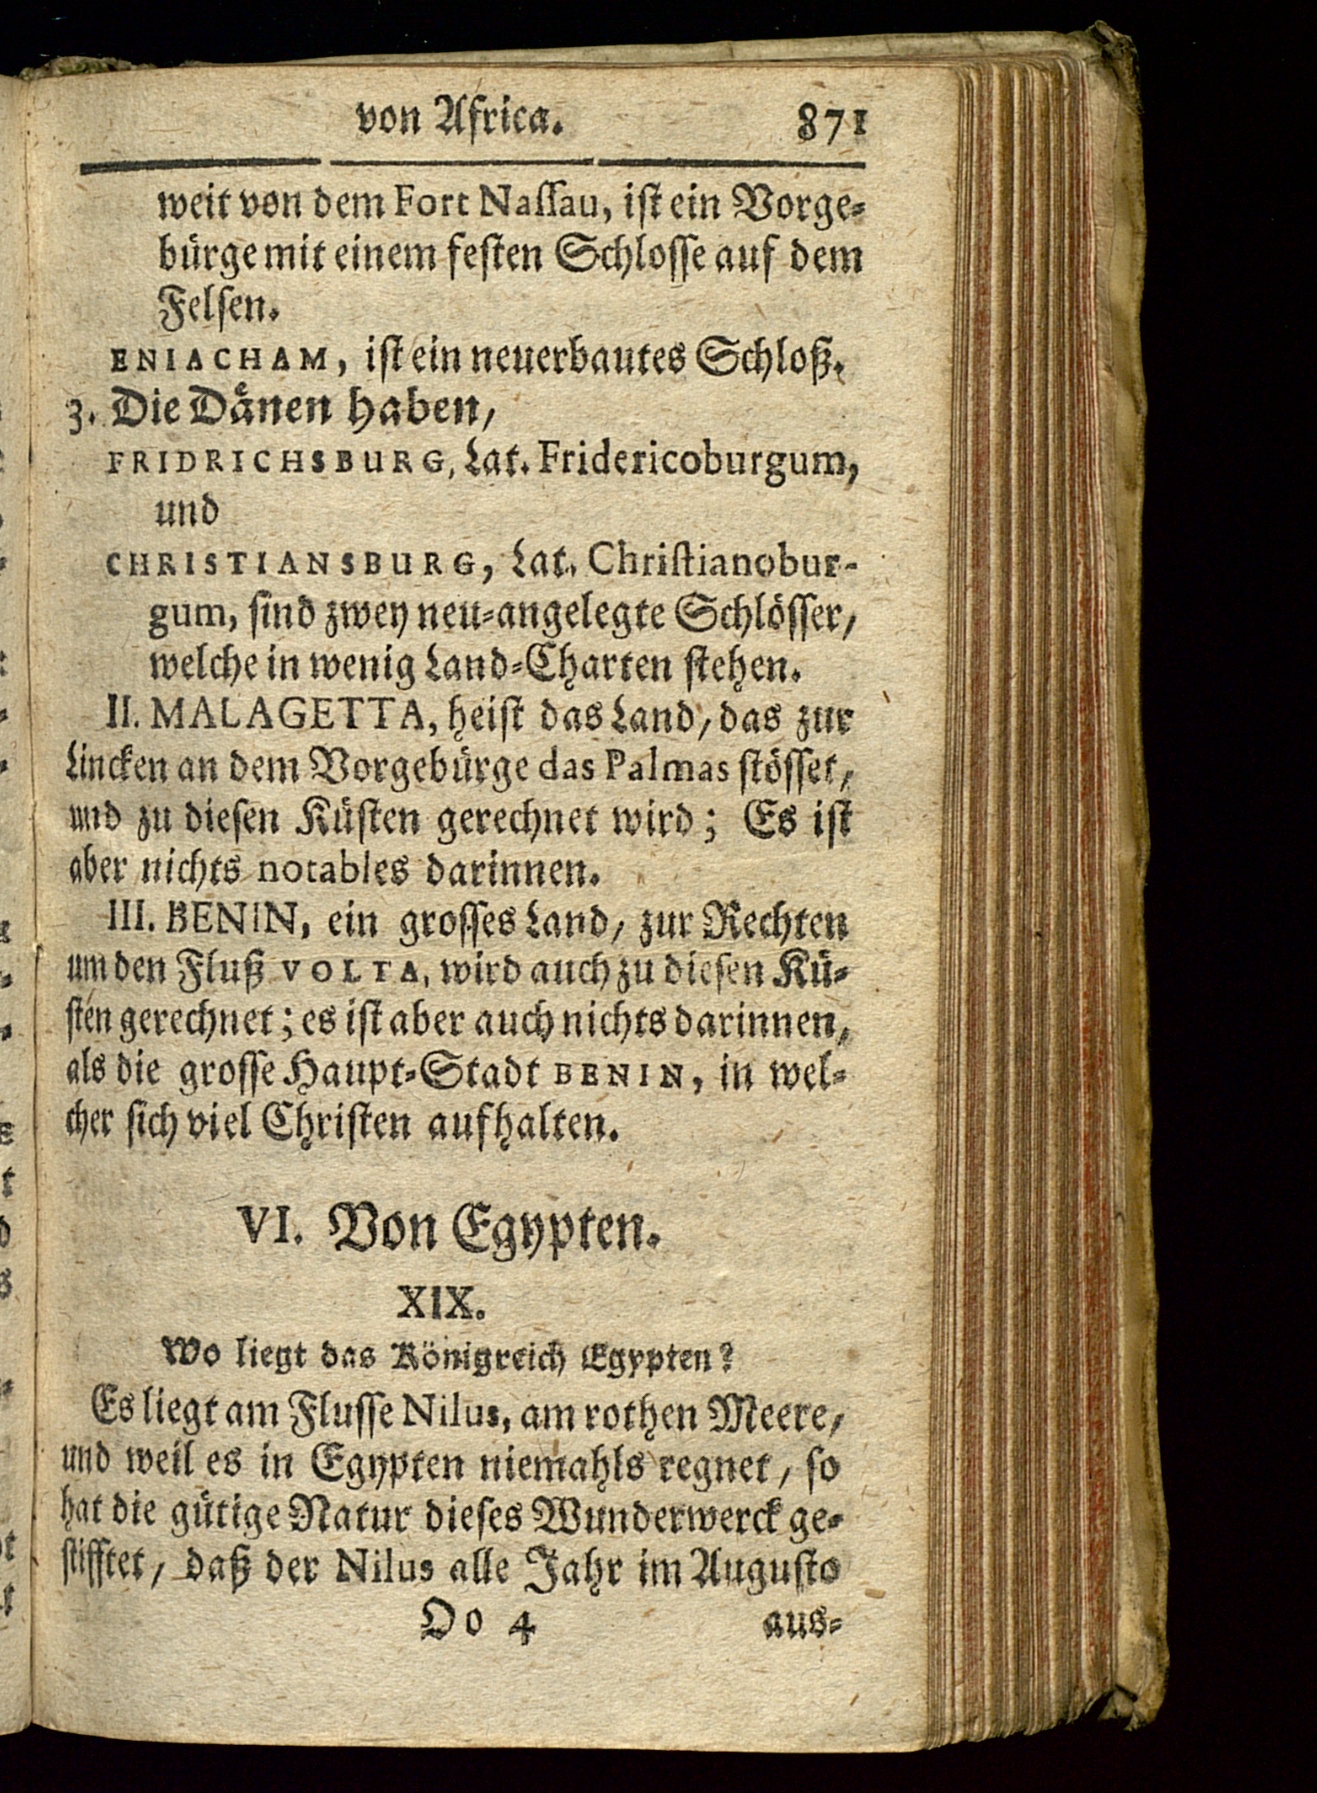 von Africa. 871
weit von dem Fort Nassau, ist ein Vorge-
bürge mit einem festen Schlosse auf dem
Felsen.
ENIACHAM, ist ein neuerbautes Schloß.
3. Die Dänen haben,
FRIDRICHSBURG, Lat. Fridericoburgum,
und
CHRISTIANSBURG, Lat. Christianobur-
gum, sind zwey neu-angelegte Schlösser,
welche in wenig Land-Charten stehen.
II. MALAGETTA, heist das Land, das zur
Lincken an dem Vorgebürge das Palmas stösset,
und zu diesen Küsten gerechnet wird; Es ist
aber nichts notables darinnen.
III. BENIN, ein grosses Land, zur Rechten
um den Fluß VOLTA, wird auch zu diesen Kü-
sten gerechnet; es ist aber auch nichts darinnen,
als die grosse Haupt-Stadt BENIN, in wel-
cher sich viel Christen aufhalten.
VI. Von Egypten.
XIX.
Wo liegt das Königreich Egypten?
Es liegt am Flusse Nilus, am rothen Meere,
und weil es in Egypten niemahls regnet, so
hat die gütige Natur dieses Wunderwerck ge-
stifftet, daß der Nilus alle Jahr im Augusto
Oo 4 aus-